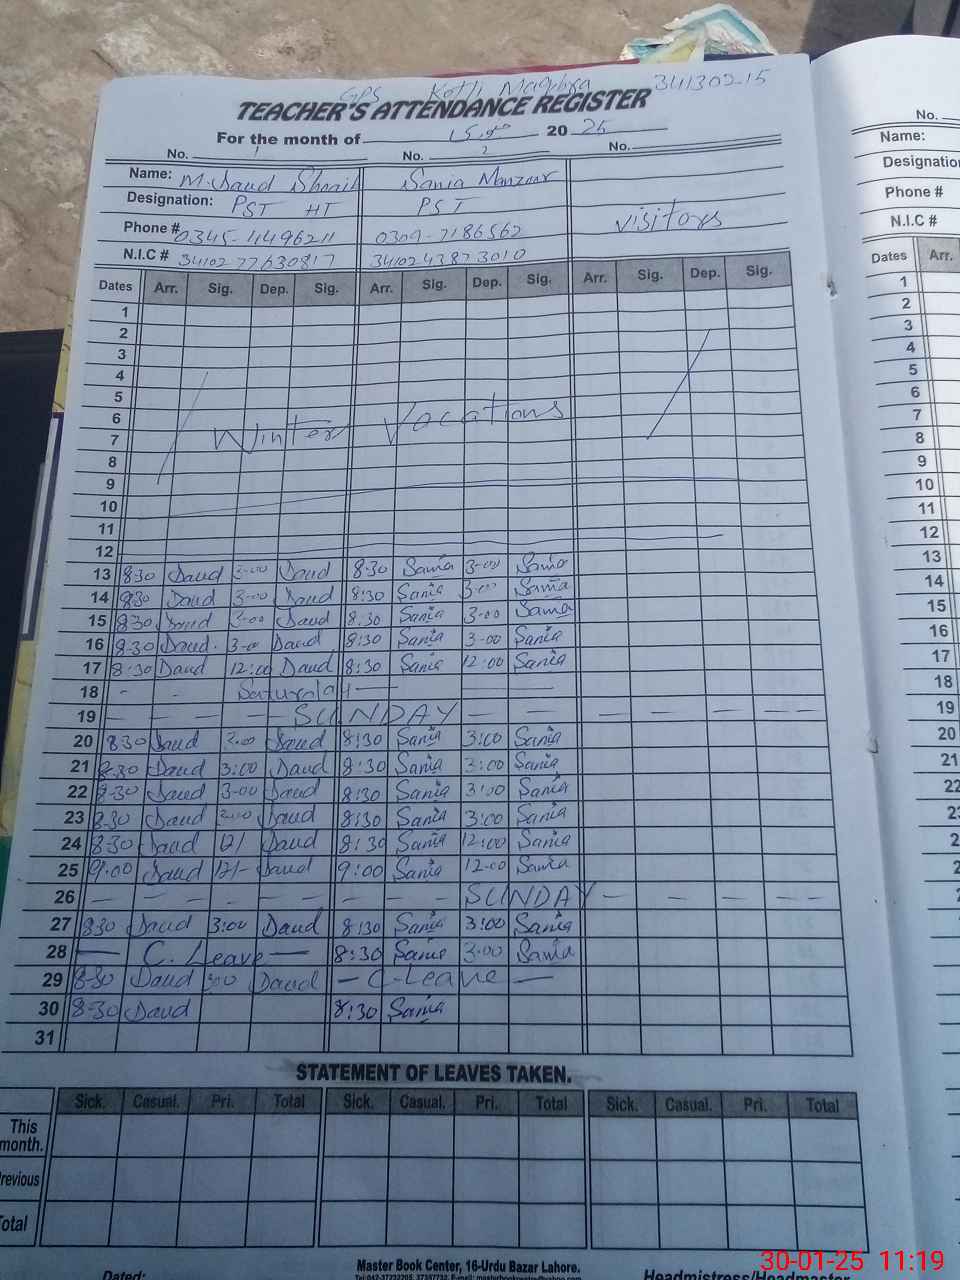 GPS Kotli Maqbra 34130215
TEACHER'S ATTENDANCE REGISTER
For the month of جنوری 2025
No. 1 No. 2 No.
Name: M. Daud Shoaib Sania Manzoor
Designation: PST HT PST
visitors
Phone # 0345-4496211 0309-7186562
N.I.C # 34102 77630817 34102 4387 3010
Dates Arr. Sig. Dep. Sig. Arr. Sig. Dep. Sig. Arr. Sig. Dep. Sig.
1
2
3
4
5
6
Winter Vacations
7
8
9
10
11
12
13 8:30 Daud 3-00 Daud 8:30 Sania 3-00 Sania
14 8:30 Daud 3-00 Daud 8:30 Sania 3-00 Sania
15 8:30 Daud 3-00 Daud 8:30 Sania 3-00 Sania
16 8:30 Daud. 3-00 Daud 8:30 Sania 3-00 Sania
17 8:30 Daud 12:00 Daud 8:30 Sania 12:00 Sania
18 - - Saturday
19 SUNDAY
20 830 Daud 3:00 Daud 8:30 Sania 3:00 Sania
21 8-30 Daud 3:00 Daud 8:30 Sania 3:00 Sania
22 8-30 Daud 3-00 Daud 8:30 Sania 3:00 Sania
23 830 Daud 3:00 Daud 8:30 Sania 3:00 Sania
24 8-30 Daud 12/ Daud 8:30 Sania 12:00 Sania
25 9:00 Daud 12/- Daud 9:00 Sania 12-00 Sania
26 SUNDAY
27 830 Daud 3:00 Daud 8:30 Sania 3:00 Sania
28 — C. Leave — 8:30 Sania 3-00 Sania
29 8-30 Daud 300 Daud — C-Leave —
30 8-30 Daud 8:30 Sania
31
STATEMENT OF LEAVES TAKEN.
Sick. Casual. Pri. Total Sick. Casual. Pri. Total Sick. Casual. Pri. Total
This
month.
Previous
Total
Master Book Center, 16-Urdu Bazar Lahore.
Dated: Headmistress/Headmaster
No.
Name:
Designation
Phone #
N.I.C #
Dates Arr.
1
2
3
4
5
6
7
8
9
10
11
12
13
14
15
16
17
18
19
20
21
22
23
30-01-25 11:19